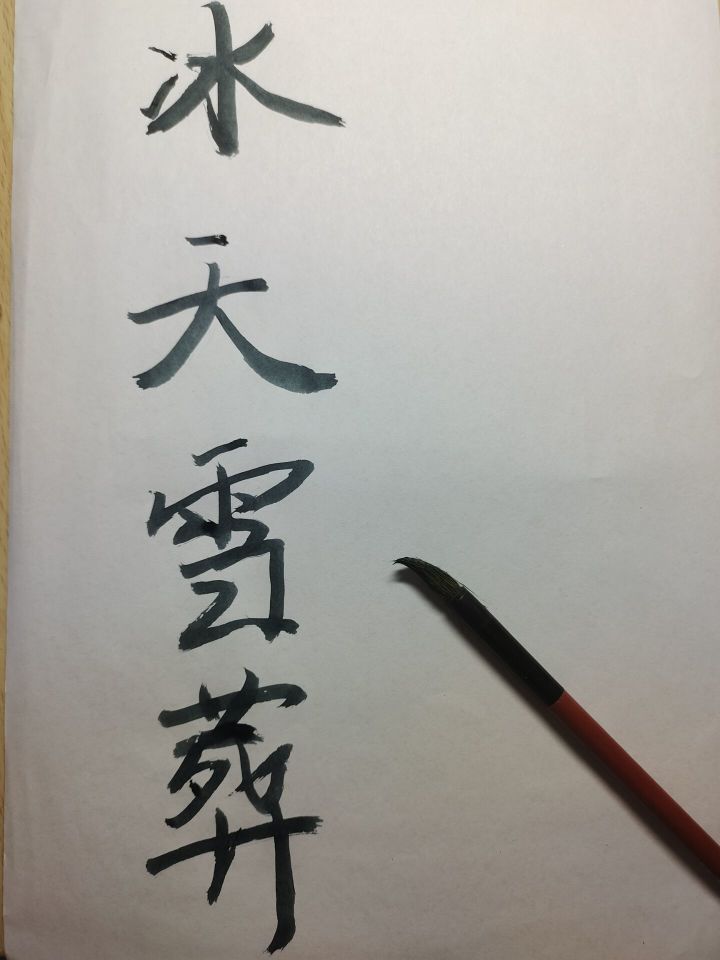 冰天雪葬